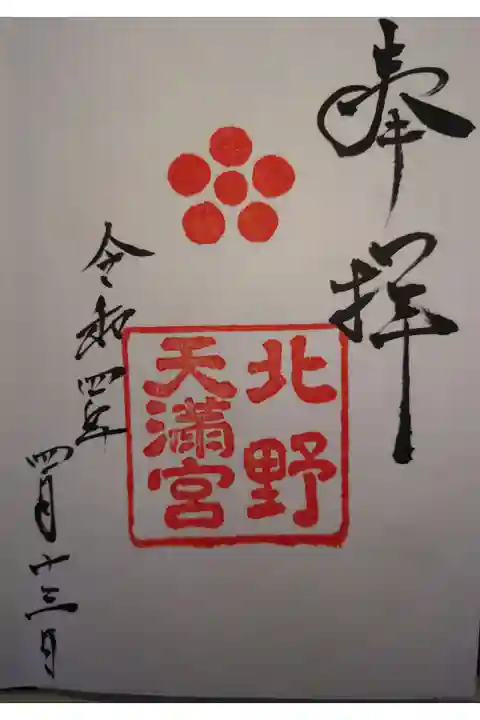 奉拝
北野
天満宮
令和四年
四月十三日